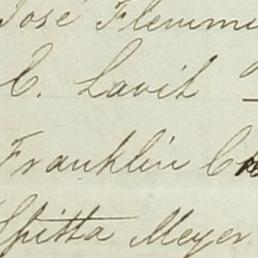 José Flemmi
C. Lavik
Franklin C
Spitta Meyer